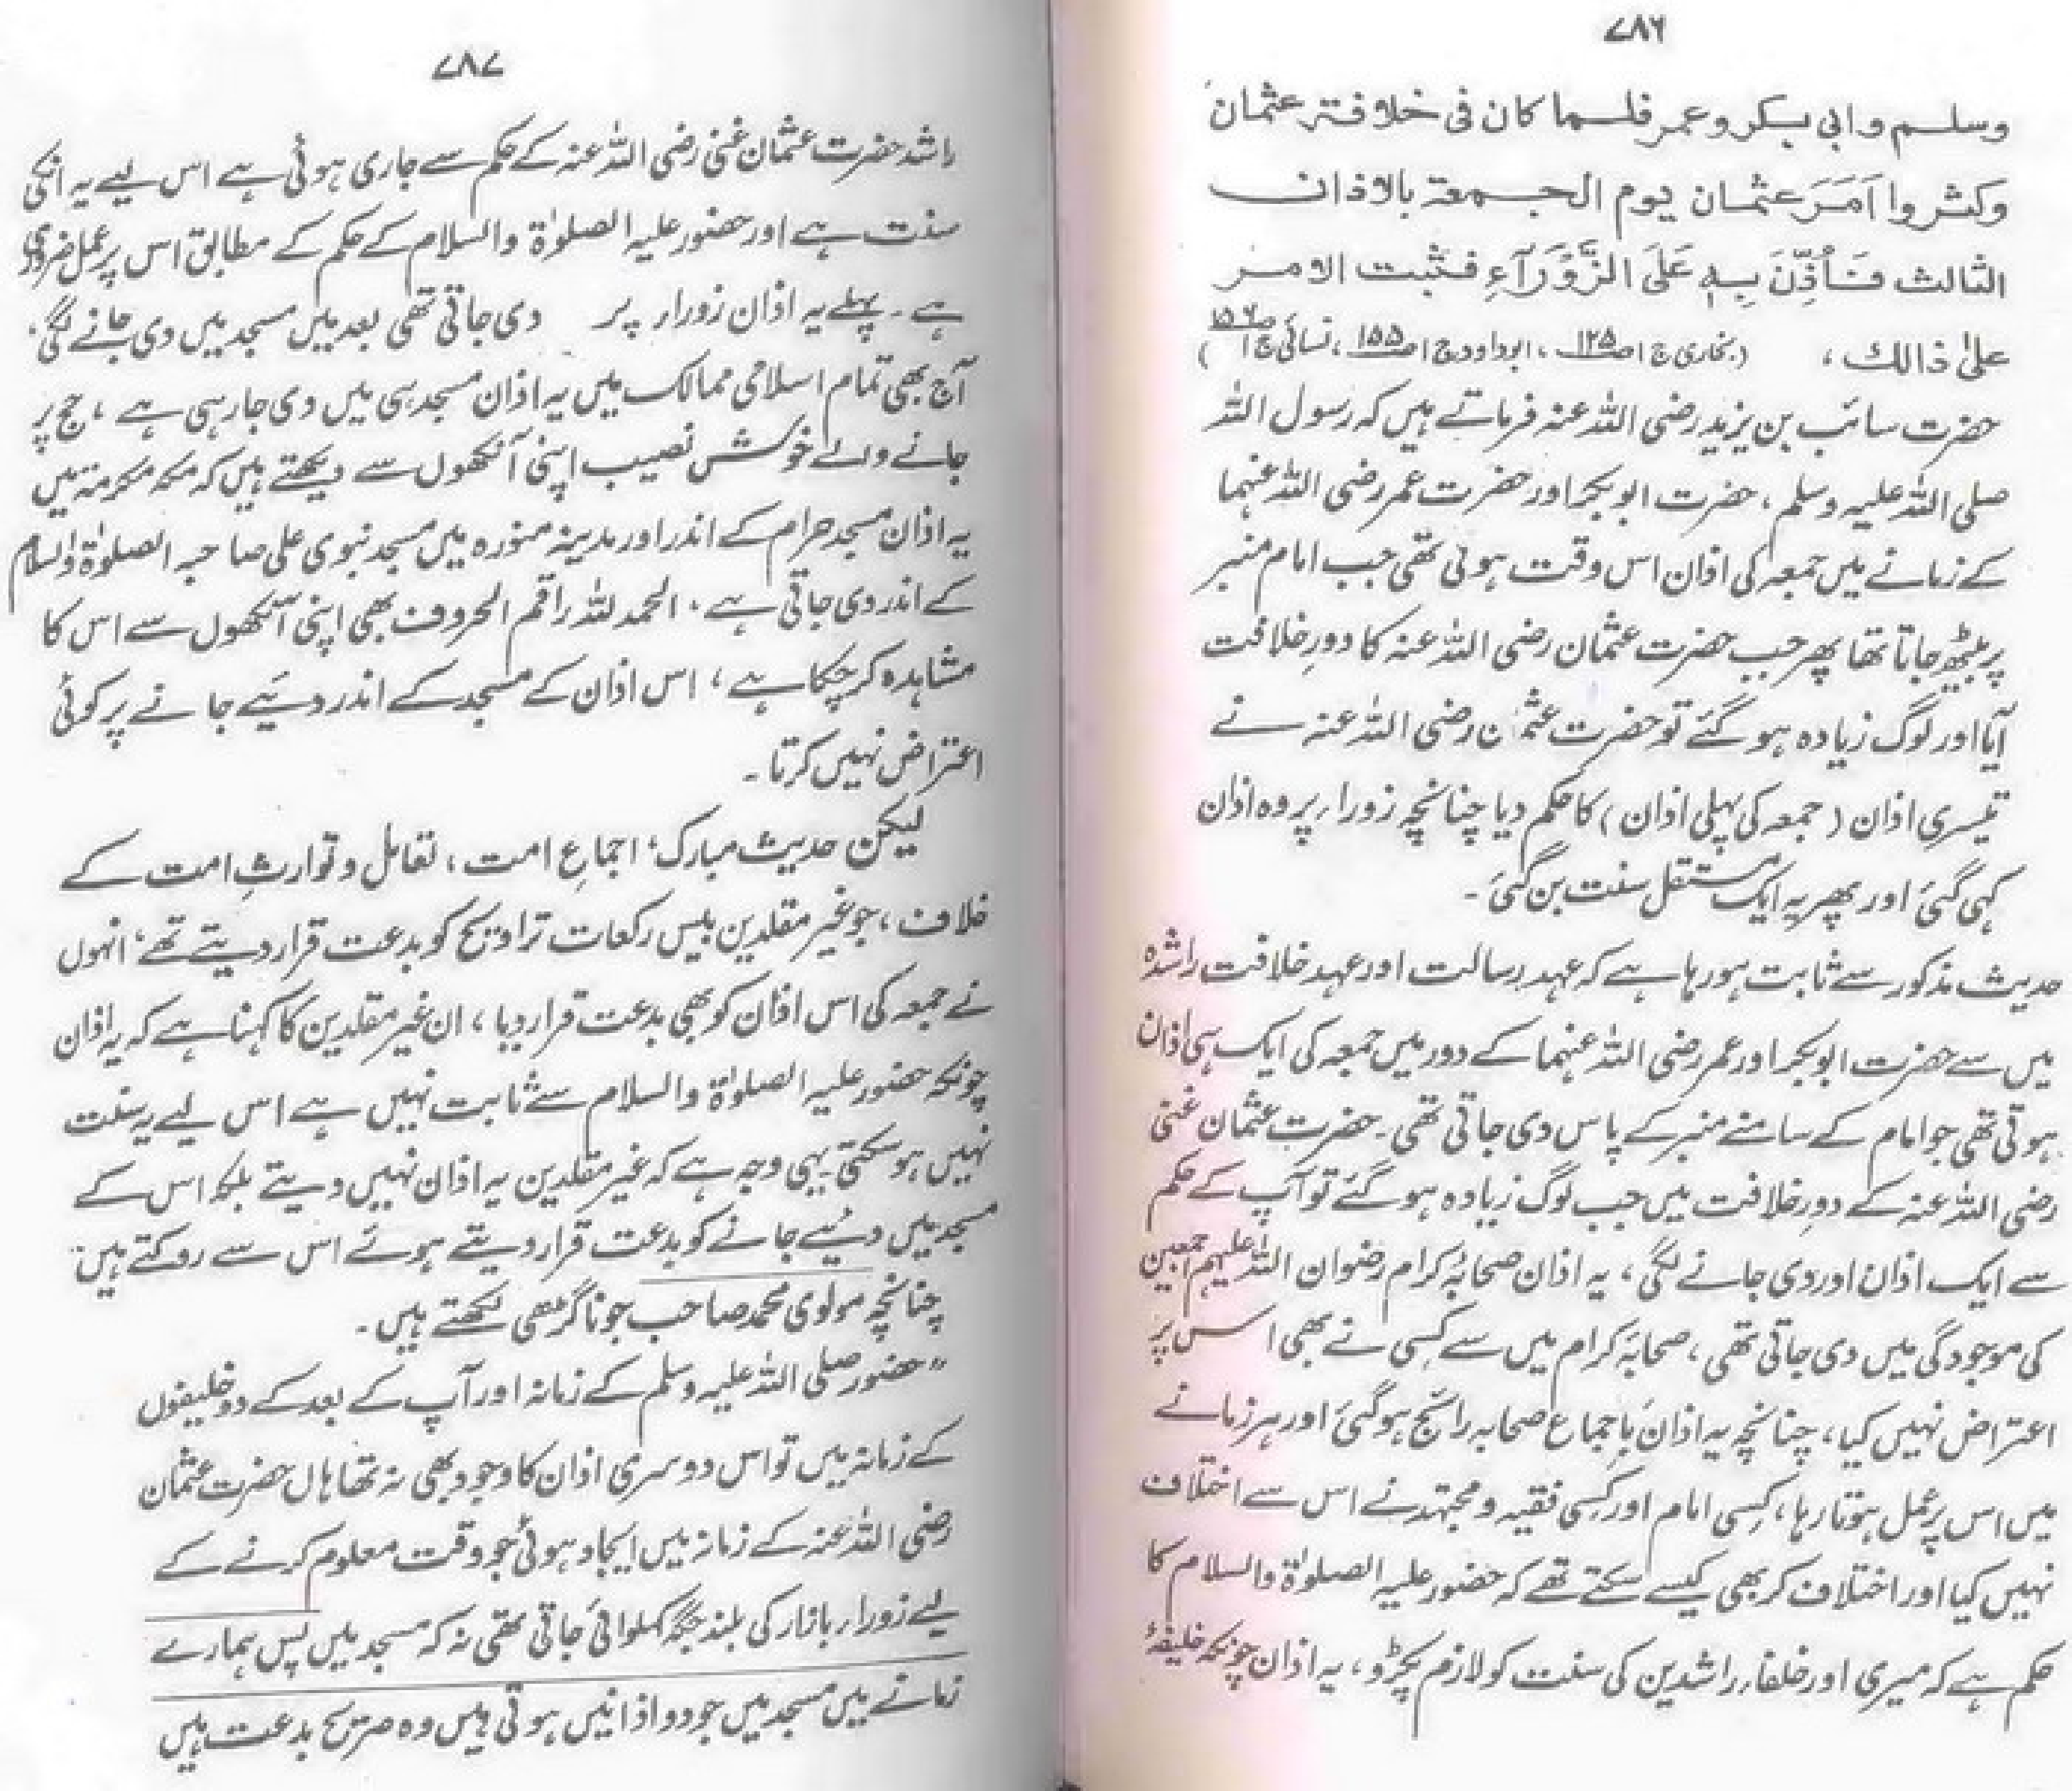 ۷۸۶
وسلم وابی بکر وعمر فلما کان فی خلافۃ عثمان
وکثروا اَمَرَ عثمان یوم الجمعۃ بالاذان
الثالث فَاُذِّنَ بِہٖ عَلَی الزَّوْرَآءِ فثبت الامر
علیٰ ذالک ، (بخاری ج۱ ص۱۲۵ ، ابوداود ج۱ ص۱۵۵ ، نسائی ج۱ ص۱۵۶)
حضرت سائب بن یزید رضی اللہ عنہ فرماتے ہیں کہ رسول اللہ
صلی اللہ علیہ وسلم ، حضرت ابوبکر اور حضرت عمر رضی اللہ عنہما
کے زمانے میں جمعہ کی اذان اس وقت ہوتی تھی جب امام منبر
پر بیٹھ جاتا تھا پھر جب حضرت عثمان رضی اللہ عنہ کا دورِ خلافت
آیا اور لوگ زیادہ ہو گئے تو حضرت عثمان رضی اللہ عنہ نے
تیسری اذان (جمعہ کی پہلی اذان) کا حکم دیا چنانچہ زوراء پر وہ اذان
کہی گئی اور پھر یہ ایک مستقل سنت بن گئی ۔
حدیث مذکور سے ثابت ہو رہا ہے کہ عہد رسالت اور عہد خلافت راشدہ
میں سے حضرت ابوبکر اور عمر رضی اللہ عنہما کے دور میں جمعہ کی ایک ہی اذان
ہوتی تھی جو امام کے سامنے منبر کے پاس دی جاتی تھی ۔ حضرت عثمان غنی
رضی اللہ عنہ کے دورِ خلافت میں جب لوگ زیادہ ہو گئے تو آپ کے حکم
سے ایک اذان اور دی جانے لگی ، یہ اذان صحابۂ کرام رضوان اللہ علیہم اجمعین
کی موجودگی میں دی جاتی تھی ، صحابۂ کرام میں سے کسی نے بھی اس پر
اعتراض نہیں کیا ، چنانچہ یہ اذان باجماع صحابہ رائج ہو گئی اور ہر زمانے
میں اس پر عمل ہوتا رہا ، کسی امام اور کسی فقیہ و مجتہد نے اس سے اختلاف
نہیں کیا اور اختلاف کر بھی کیسے سکتے تھے کہ حضور علیہ الصلوٰۃ والسلام کا
حکم ہے کہ میری اور خلفاء راشدین کی سنت کو لازم پکڑو ، یہ اذان چونکہ خلیفۂ
۷۸۷
راشد حضرت عثمان غنی رضی اللہ عنہ کے حکم سے جاری ہوئی ہے اس لیے یہ انکی
سنت ہے اور حضور علیہ الصلوٰۃ والسلام کے حکم کے مطابق اس پر عمل ضروری
ہے ۔ پہلے یہ اذان زوراء پر دی جاتی تھی بعد میں مسجد میں دی جانے لگی ،
آج بھی تمام اسلامی ممالک میں یہ اذان مسجد ہی میں دی جا رہی ہے ، حج پر
جانے والے خوش نصیب اپنی آنکھوں سے دیکھتے ہیں کہ مکہ مکرمہ میں
یہ اذان مسجد حرام کے اندر اور مدینہ منورہ میں مسجد نبوی علی صاحبہ الصلوٰۃ والسلام
کے اندر دی جاتی ہے ، الحمد للہ راقم الحروف بھی اپنی آنکھوں سے اس کا
مشاہدہ کر چکا ہے ، اس اذان کے مسجد کے اندر دئیے جانے پر کوئی
اعتراض نہیں کرتا ۔
لیکن حدیث مبارک ، اجماعِ امت ، تعامل و توارثِ امت کے
خلاف ، جو غیر مقلدین بیس رکعات تراویح کو بدعت قرار دیتے تھے ، انہوں
نے جمعہ کی اس اذان کو بھی بدعت قرار دیا ، ان غیر مقلدین کا کہنا ہے کہ یہ اذان
چونکہ حضور علیہ الصلوٰۃ والسلام سے ثابت نہیں ہے اس لیے یہ سنت
نہیں ہو سکتی یہی وجہ ہے کہ غیر مقلدین یہ اذان نہیں دیتے بلکہ اس کے
مسجد میں دئیے جانے کو بدعت قرار دیتے ہوئے اس سے روکتے ہیں
چنانچہ مولوی محمد صاحب جوناگڑھی لکھتے ہیں ۔
" حضور صلی اللہ علیہ وسلم کے زمانہ اور آپ کے بعد کے دو خلیفوں
کے زمانہ میں تو اس دوسری اذان کا وجود بھی نہ تھا ہاں حضرت عثمان
رضی اللہ عنہ کے زمانہ میں ایجاد ہوئی جو وقت معلوم کرنے کے
لیے زوراء بازار کی بلند جگہ کہلوائی جاتی تھی نہ کہ مسجد میں پس ہمارے
زمانے میں مسجد میں جو دو اذانیں ہوتی ہیں وہ صریح بدعت ہیں